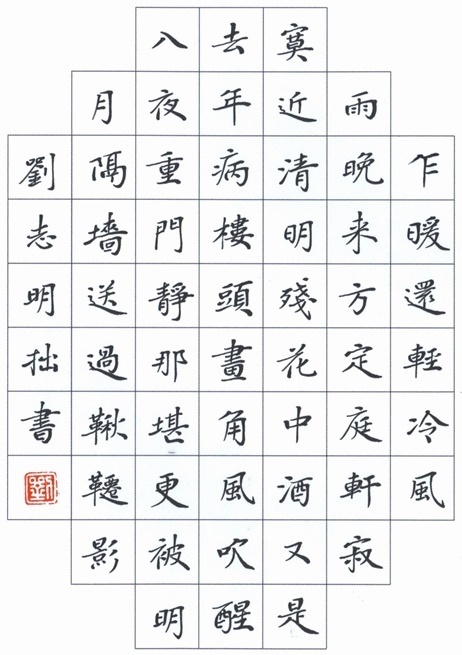 乍暖還輕冷風
雨晚来方定庭軒寂
寞近清明殘花中酒又是
去年病樓頭畫角風吹醒
入夜重門靜那堪更被明
月隔墻送過鞦韆影
劉志明拙書
劉